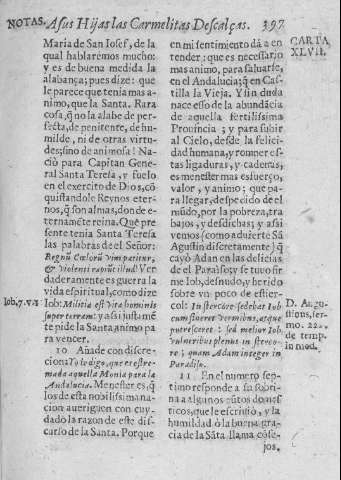 NOTAS. A sus Hijas las Carmelitas Descalças. 397
Maria de San Iosef, de la
qual hablarèmos mucho:
y es de buena medida la
alabança; pues dize: que
le parece que tenia mas a-
nimo, que la Santa. Rara
cosa, q̃ no la alabe de per-
fecta, de penitente, de hu-
milde, ni de otras virtu-
des; sino de animosa! Na-
ciò para Capitan Gene-
ral Santa Teresa, y fuelo
en el exercito de Dios, cõ
quistandole Reynos eter-
nos, q̃ son almas, donde e-
ternamẽte reina. Què pre
sente tenia Santa Teresa
las palabras del Señor:
Regnũ Cœlorũ vim patitur,
& violenti rapiũt illud! Ver
daderamente es guerra la
vida espiritual, como dize
Iob: Militia est vita hominis
super terram: y assi justamẽ
te pide la Santa animo pa
ra vencer.
10 Añade con discre-
cion: Yo le digo, que es estre-
mada aquella Monja para la
Andaluzia. Menester es, q̃
los de esta nobilissima na-
cion aueriguen con cuy-
dado la razon de este dis-
curso de la Santa. Porque
Iob. 7. v. 1
en mi sentimiento dà a en
tender: que es necessario
mas animo, para saluarse,
en el Andaluzia; q̃ en Cas-
tilla la Vieja. Y sin duda
nace esso de la abundãcia
de aquella fertilissima
Prouincia; y para subir
al Cielo, desde la felici-
dad humana, y romper es-
tas ligaduras, y cadenas,
es menester mas esfuerço,
valor, y animo; que pa-
ra llegar, despecido de el
mũdo, por la pobreza, tra
bajos, y desdichas; y assi
vemos (como aduierte Sã
Agustin discretamente) q̃
cayò Adan en las delicias
de el Paraiso; y se tuuo fir
me Iob, desnudo, y herido
sobre vn poco de estier-
col: In stercore sedebat Iob
cum flueret vermibus, atque
putresceret: sed melior Iob
vulneribus plenus in sterco-
re; quam Adam integer in
Paradiso.
11 En el numero sep-
timo responde a su sobri-
na a algunos cũtos domes-
ticos, que le escriuiò, y la
humildad ò la buena gra-
cia de la Sãta llama cõse-
jos,
CARTA
XLVII.
D. Augu-
stinus, ser-
mo. 222.
de temp.
in med.